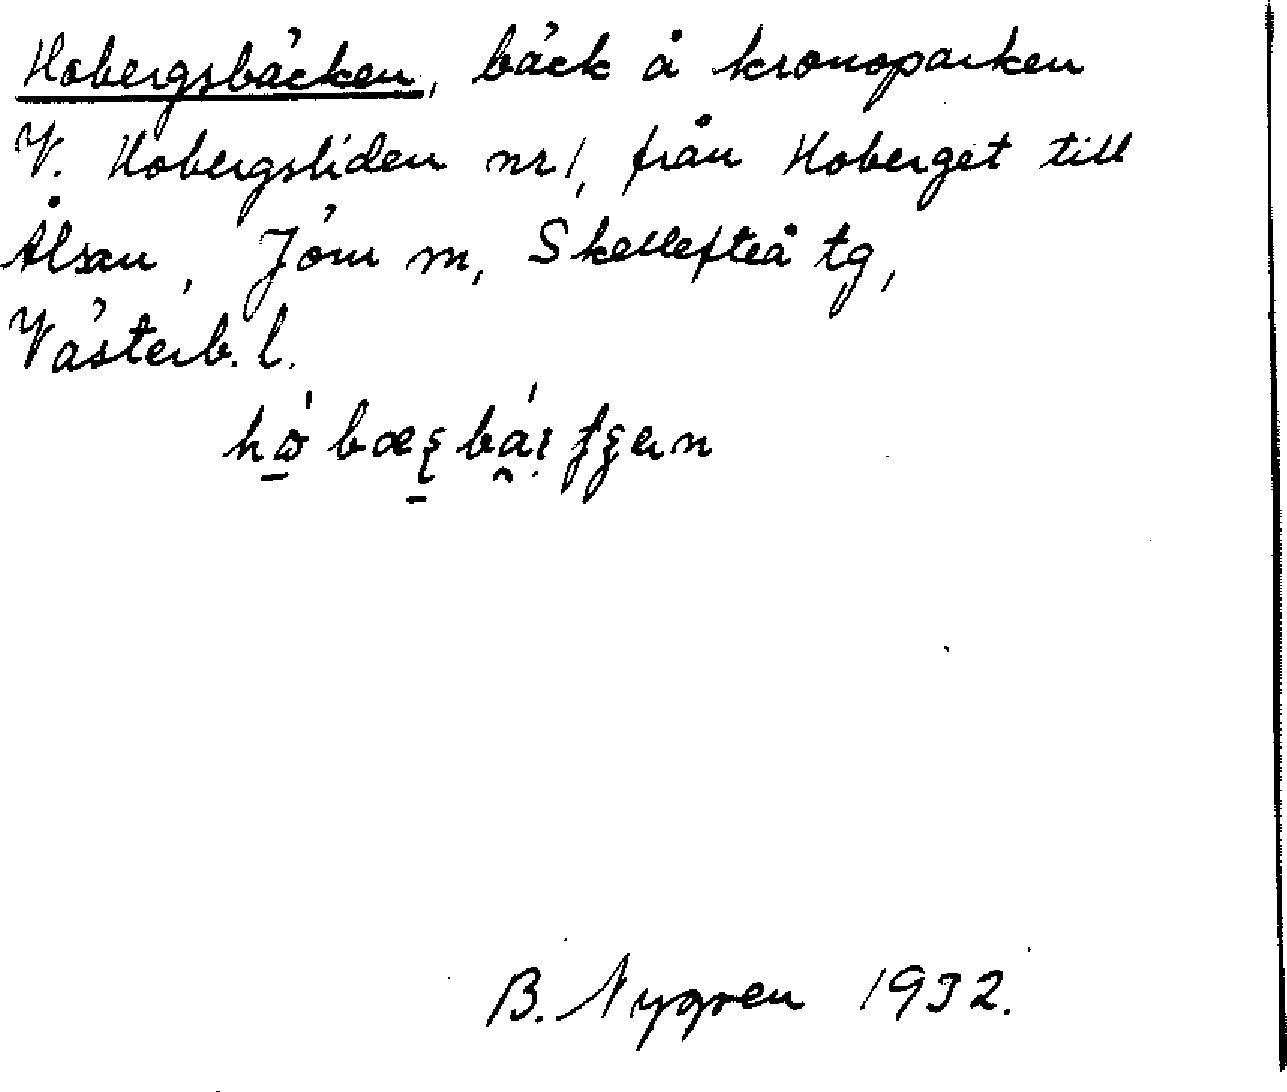 Hobergsbäcken, bäck å kronoparken
V. Hobergsliden nr 1, från Hoberget till
Ålsån, Jörn m, Skellefteå tg,
Västerb. l.
B. Nygren 1932.